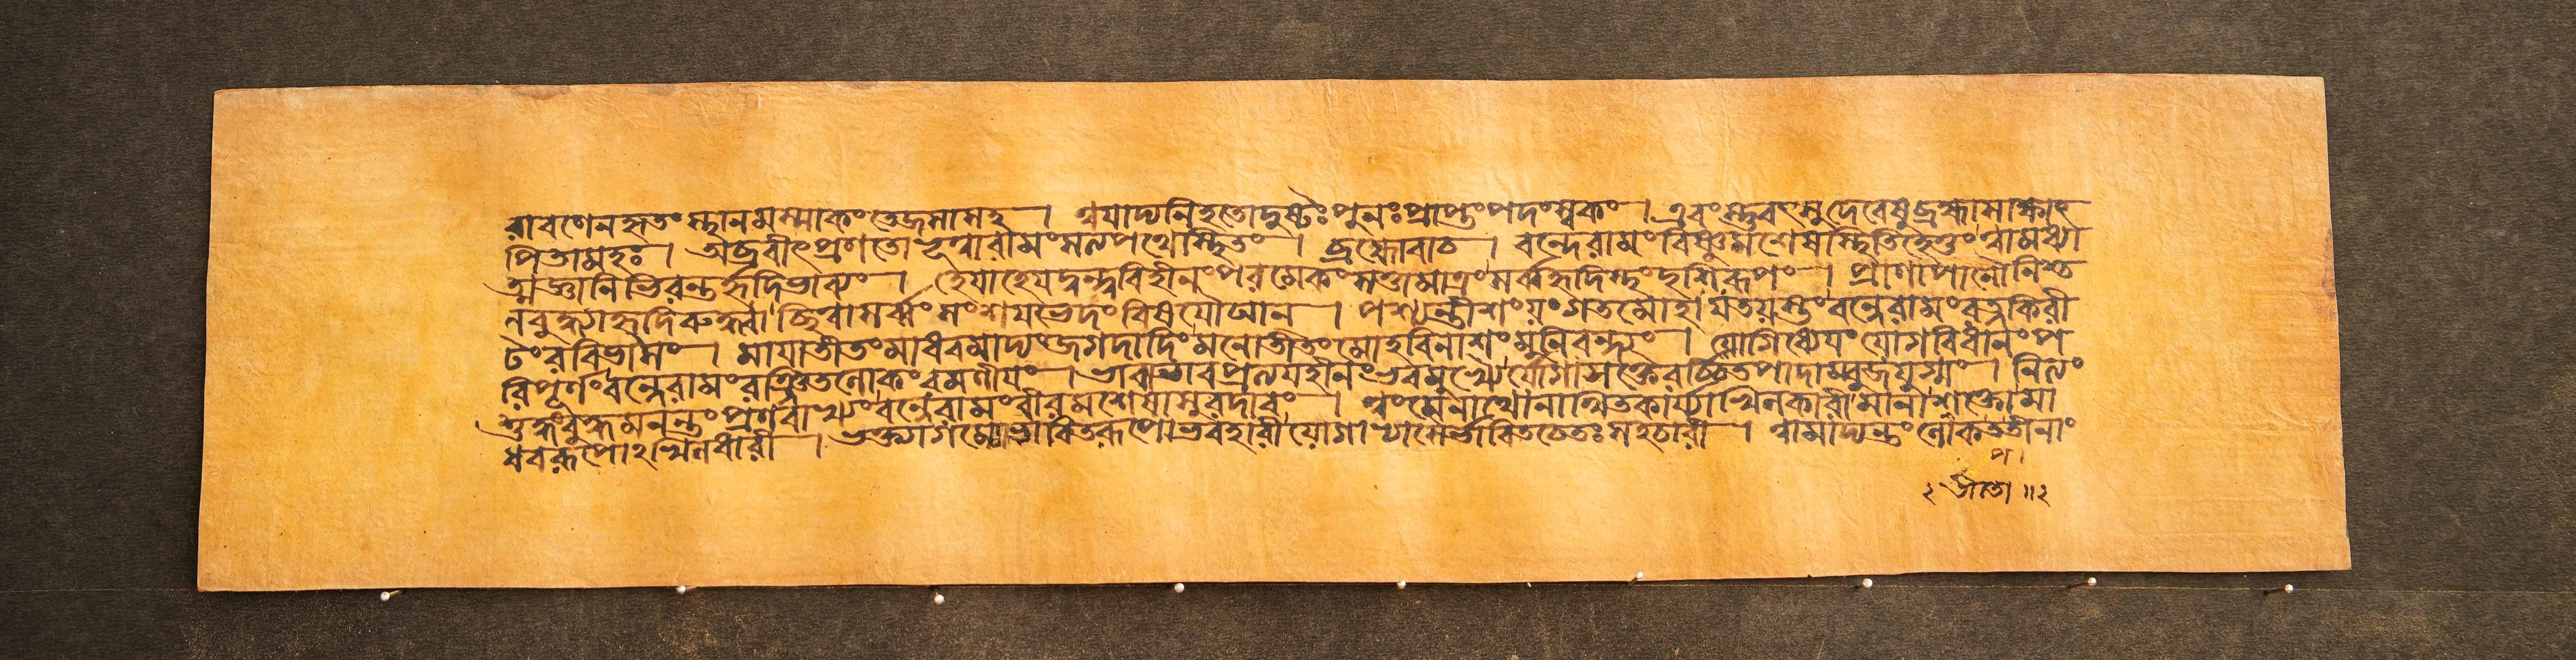 রাবণেনহৃতংস্থানমস্মাকংতেজসাসহ । ত্বয়াদ্যনিহতোদুষ্টঃপুনঃপ্রাপ্তংপদংস্বকং । এবংস্তুবৎসুদেবেষুব্রহ্মাসাক্ষাৎ
পিতামহঃ । অব্রবীৎপ্রণতোভূত্বারামংসত্যপথেস্থিতং । ব্রহ্মোবাচ । বন্দেরামংবিষ্ণুমশেষস্থিতিহেতুংত্বামধ্যা
ত্মজ্ঞানিভিরন্তর্হৃদিভাব্যং । হেয়াহেয়দ্বন্দ্ববিহীনংপরমেকংসত্তামাত্রংসর্বহৃদিস্থংদৃশিরূপং । প্রাণাপানৌনিশ্চ
লবুদ্ধ্যাহৃদিরুদ্ধ্বাছিত্বাসর্ব্বংসংশয়ভেদংবিষয়ৌঘান । পশ্যন্তীশংয়ংগতমোহায়তয়স্তংবন্দেরামংরত্নকিরী
টংরবিভাসং । মায়াতীতংমাধবমাদ্যংজগদাদিংমনোতীতংমোহবিনাশংমুনিবন্দ্যং । য়োগিধ্যেয়ংয়োগবিধানংপ
রিপূর্ণংবন্দেরামংরঞ্জিতলোকংরমণীয়ং । ভাবাভাবপ্রত্যয়হীনংভবমুখ্যৈর্যোগাসক্তৈরর্চ্চিতপাদাম্বুজয়ুগ্মং । নিত্যং
শুদ্ধংবুদ্ধমনন্তংপ্রণবাখ্যংবন্দেরামংবীরমশেষাসুরদাবং । ত্বংমেনাথোনাথিতকার্য্যাখিলকারীমানাশক্তোমা
ধবরূপোঽখিলধারী । ভক্ত্যাগম্যোভাবিতরূপোভবহারীয়োগাভ্যাসৈর্ভাবিতচেতঃসহচারী । ত্বামাদ্যন্তংলোকততীনাং